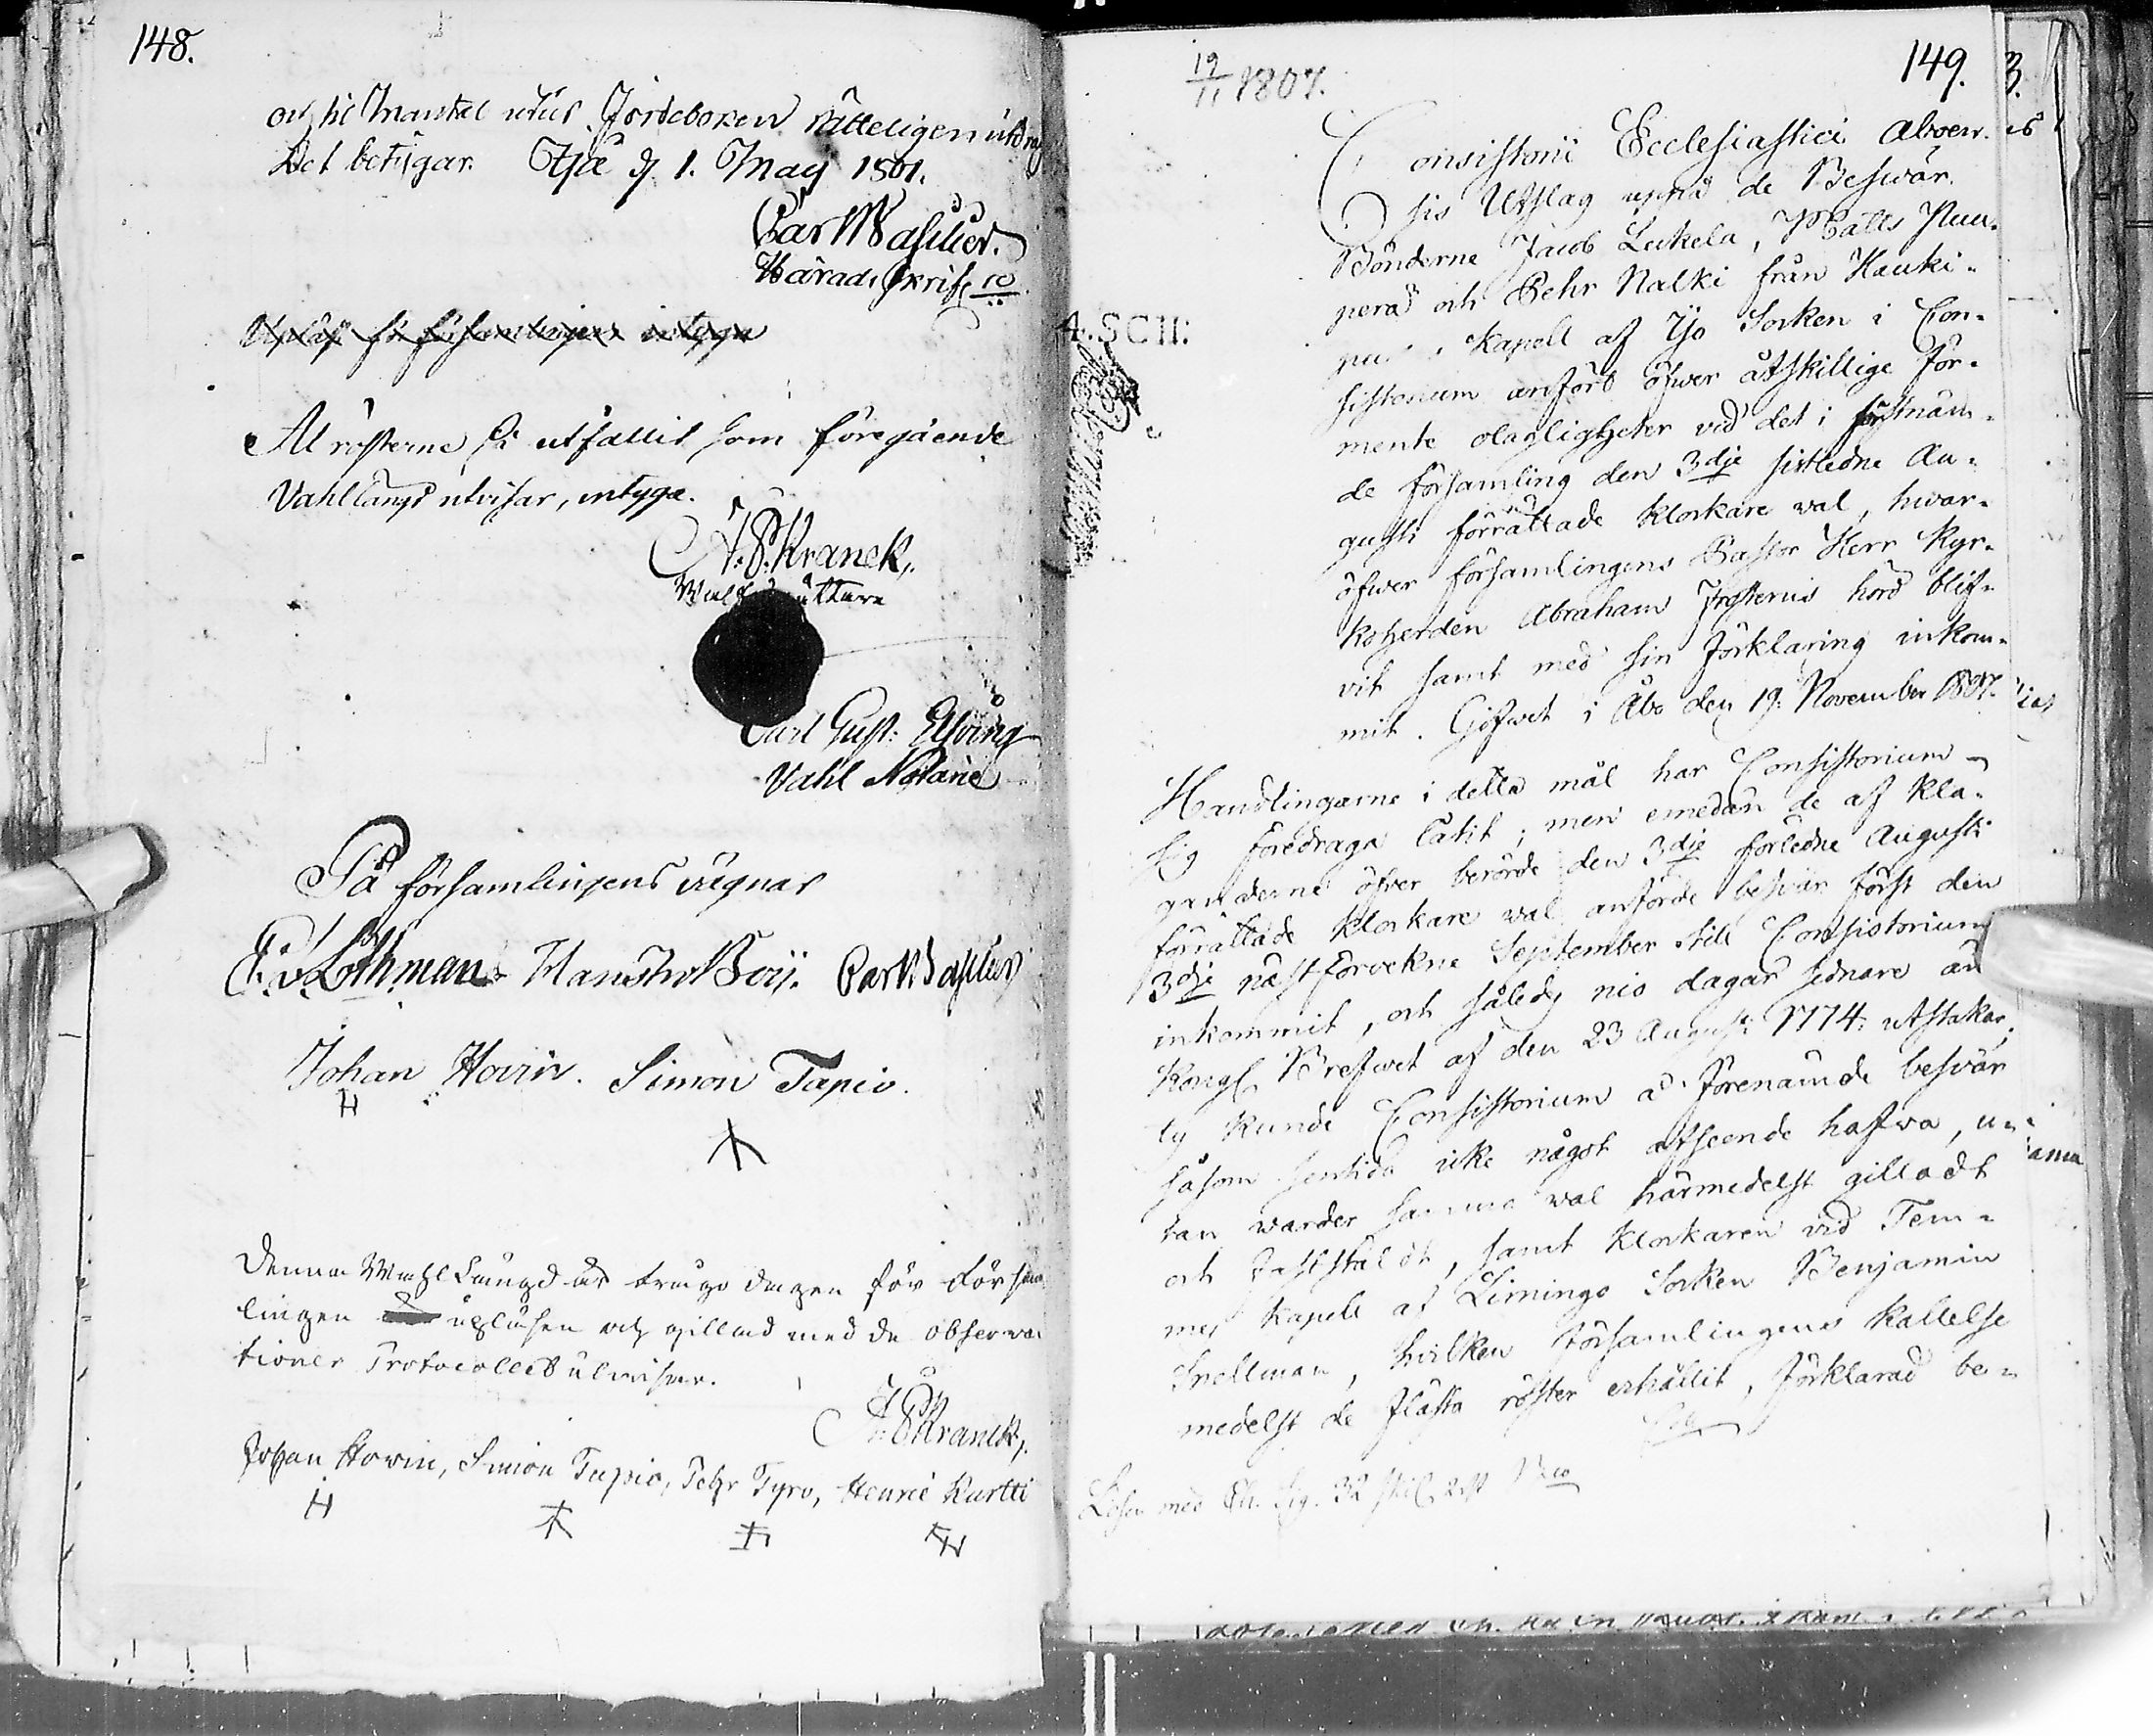 148.
och til Mantal utur Jordeboken rätteligen utdra
Det betygar. Ijo d. 1. May 1801.
Härads Skrif
Al rösterne så utfallit som föregående
Vahl längd utvisar, intyga.
A. P. Kranck,
Carl Gust. Elfving
Vahl Notarie
På församlingens vägnar
Johan Hovin. Simon Tapio.
H
Denna Wahl Längd är trenne dagen för Försam
lingen upläsen och gillad med de observa
tioner Protocollet utvisar.
A. P. Kranck,
Johan Hovin, Simon Tapio, Pehr Tyro, Henric Kurtti
H
149.
19/11 1807.
Consistorii Ecclesiastici Aboen-
sis Utslag uppå de Beswär
Bönderne Jacob Leikela, Matts Nuu-
perä och Pehr Nalki från Hauki-
pu Kapell af Ijo Socken i Con-
sistorium anfört öfwer åtskillige för-
mente olagligheter vid det i förstnäm-
de församling den 3dje sistledne Au-
gusti förrättade klockare wal, hwar-
öfwer församlingens Pastor Herr Kyr-
koherden Abraham Frosterus hörd blif-
vit samt med sin förklaring inkom-
mit. Gifwet i Åbo den 19. November 1807.
A. SCH:
Handlingarne i detta mål har Consistorium
sig föredraga låtit; men emedan de af kla-
ganderne öfver berörde den 3dje förledne Augusti
förrättade klockare wal anförde beswär först den
3dje näst förvekne September till Consistorium
inkommit, och således nio dagar sednare än
Kongl Brefwet af den 23 August 1774. utstakar;
ty kunde Consistorium å förenämde beswär
såsom sentida icke något afseende hafwa, u-
tan warder samma wal härmedelst gilladt
och fastställdt, samt klockaren vid Tem-
mes Kapell af Limingo Socken Benjamin
Snellman, hvilken församlingens kallelse
medelst de flästa röster erhållit, förklarad be-
Lösen med Ch. Sig. 32 skil 2 rst B co